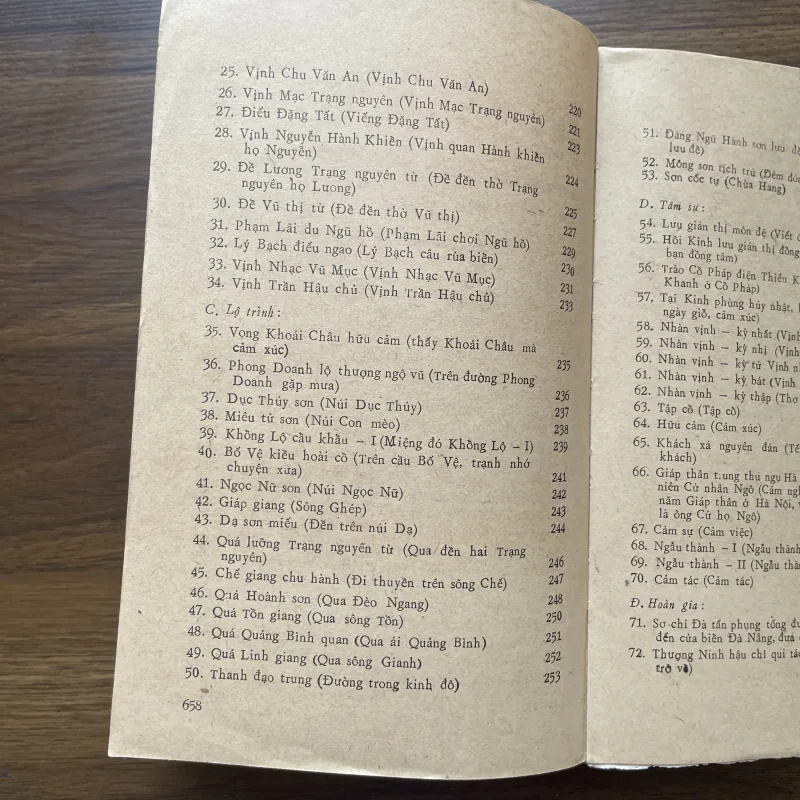 25. Vịnh Chu Văn An (Vịnh Chu Văn An) 220
26. Vịnh Mạc Trạng nguyên (Vịnh Mạc Trạng nguyên) 221
27. Điếu Đặng Tất (Viếng Đặng Tất) 223
28. Vịnh Nguyễn Hành Khiển (Vịnh quan Hành khiển
họ Nguyễn) 224
29. Đề Lương Trạng nguyên từ (Đề đền thờ Trạng
nguyên họ Lương) 225
30. Đề Vũ thị từ (Đề đền thờ Vũ thị) 227
31. Phạm Lãi du Ngũ hồ (Phạm Lãi chơi Ngũ hồ) 229
32. Lý Bạch điếu ngao (Lý Bạch câu rùa biển) 230
33. Vịnh Nhạc Vũ Mục (Vịnh Nhạc Vũ Mục) 231
34. Vịnh Trần Hậu chủ (Vịnh Trần Hậu chủ) 233
C. Lộ trình:
35. Vọng Khoái Châu hữu cảm (thấy Khoái Châu mà
cảm xúc) 235
36. Phong Doanh lộ thượng ngộ vũ (Trên đường Phong
Doanh gặp mưa) 236
37. Dục Thúy sơn (Núi Dục Thúy) 237
38. Miêu tử sơn (Núi Con mèo) 238
39. Khổng Lộ cầu khẩu – I (Miệng đó Khổng Lộ – I) 239
40. Bố Vệ kiều hoài cổ (Trên cầu Bố Vệ, trạnh nhớ
chuyện xưa) 241
41. Ngọc Nữ sơn (Núi Ngọc Nữ) 242
42. Giáp giang (Sông Ghép) 243
43. Dạ sơn miếu (Đền trên núi Dạ) 244
44. Quá lưỡng Trạng nguyên từ (Qua đền hai Trạng
nguyên) 246
45. Chế giang chu hành (Đi thuyền trên sông Chế) 247
46. Quá Hoành sơn (Qua Đèo Ngang) 248
47. Quá Tồn giang (Qua sông Tồn) 250
48. Quá Quảng Bình quan (Qua ải Quảng Bình) 251
49. Quả Linh giang (Qua sông Gianh) 252
50. Thanh đạo trung (Đường trong kinh đô) 253
658
51. Đàng Ngũ Hành sơn lưu
lưu đề)
52. Mông sơn tịch trú (Đêm
53. Sơn cốc tự (Chùa Hang)
D. Tâm sự:
54. Lưu giản thị môn đệ (Viết
55. Hồi Kinh lưu giản thị đồng
bạn đồng tâm)
56. Trào Cổ Pháp điện Thiếu
Khanh ở Cổ Pháp)
57. Tại Kinh phùng húy nhật,
ngày giỗ, cảm xúc)
58. Nhàn vịnh – kỳ nhất (Vịnh
59. Nhàn vịnh – kỳ nhị (Vịnh
60. Nhàn vịnh – kỳ tứ Vịnh
61. Nhàn vịnh – kỳ bát (Vịnh
62. Nhàn vịnh – kỳ thập (Thơ
63. Tập cổ (Tập cổ)
64. Hữu cảm (Cảm xúc)
65. Khách xá nguyên đán (Tế
khách)
66. Giáp thân trung thu ngụ Hà
niên Cử nhân Ngô (Cảm
năm Giáp thân ở Hà Nội,
là ông Cử họ Ngô)
67. Cảm sự (Cảm việc)
68. Ngẫu thành – I (Ngẫu thành
69. Ngẫu thành – II (Ngẫu thành
70. Cảm tác (Cảm tác)
Đ. Hoàn gia:
71. Sơ chí Đà tấn phụng tống
đến cửa biển Đà Nẵng, đưa
72. Thượng Ninh hậu chỉ qui
trở về)